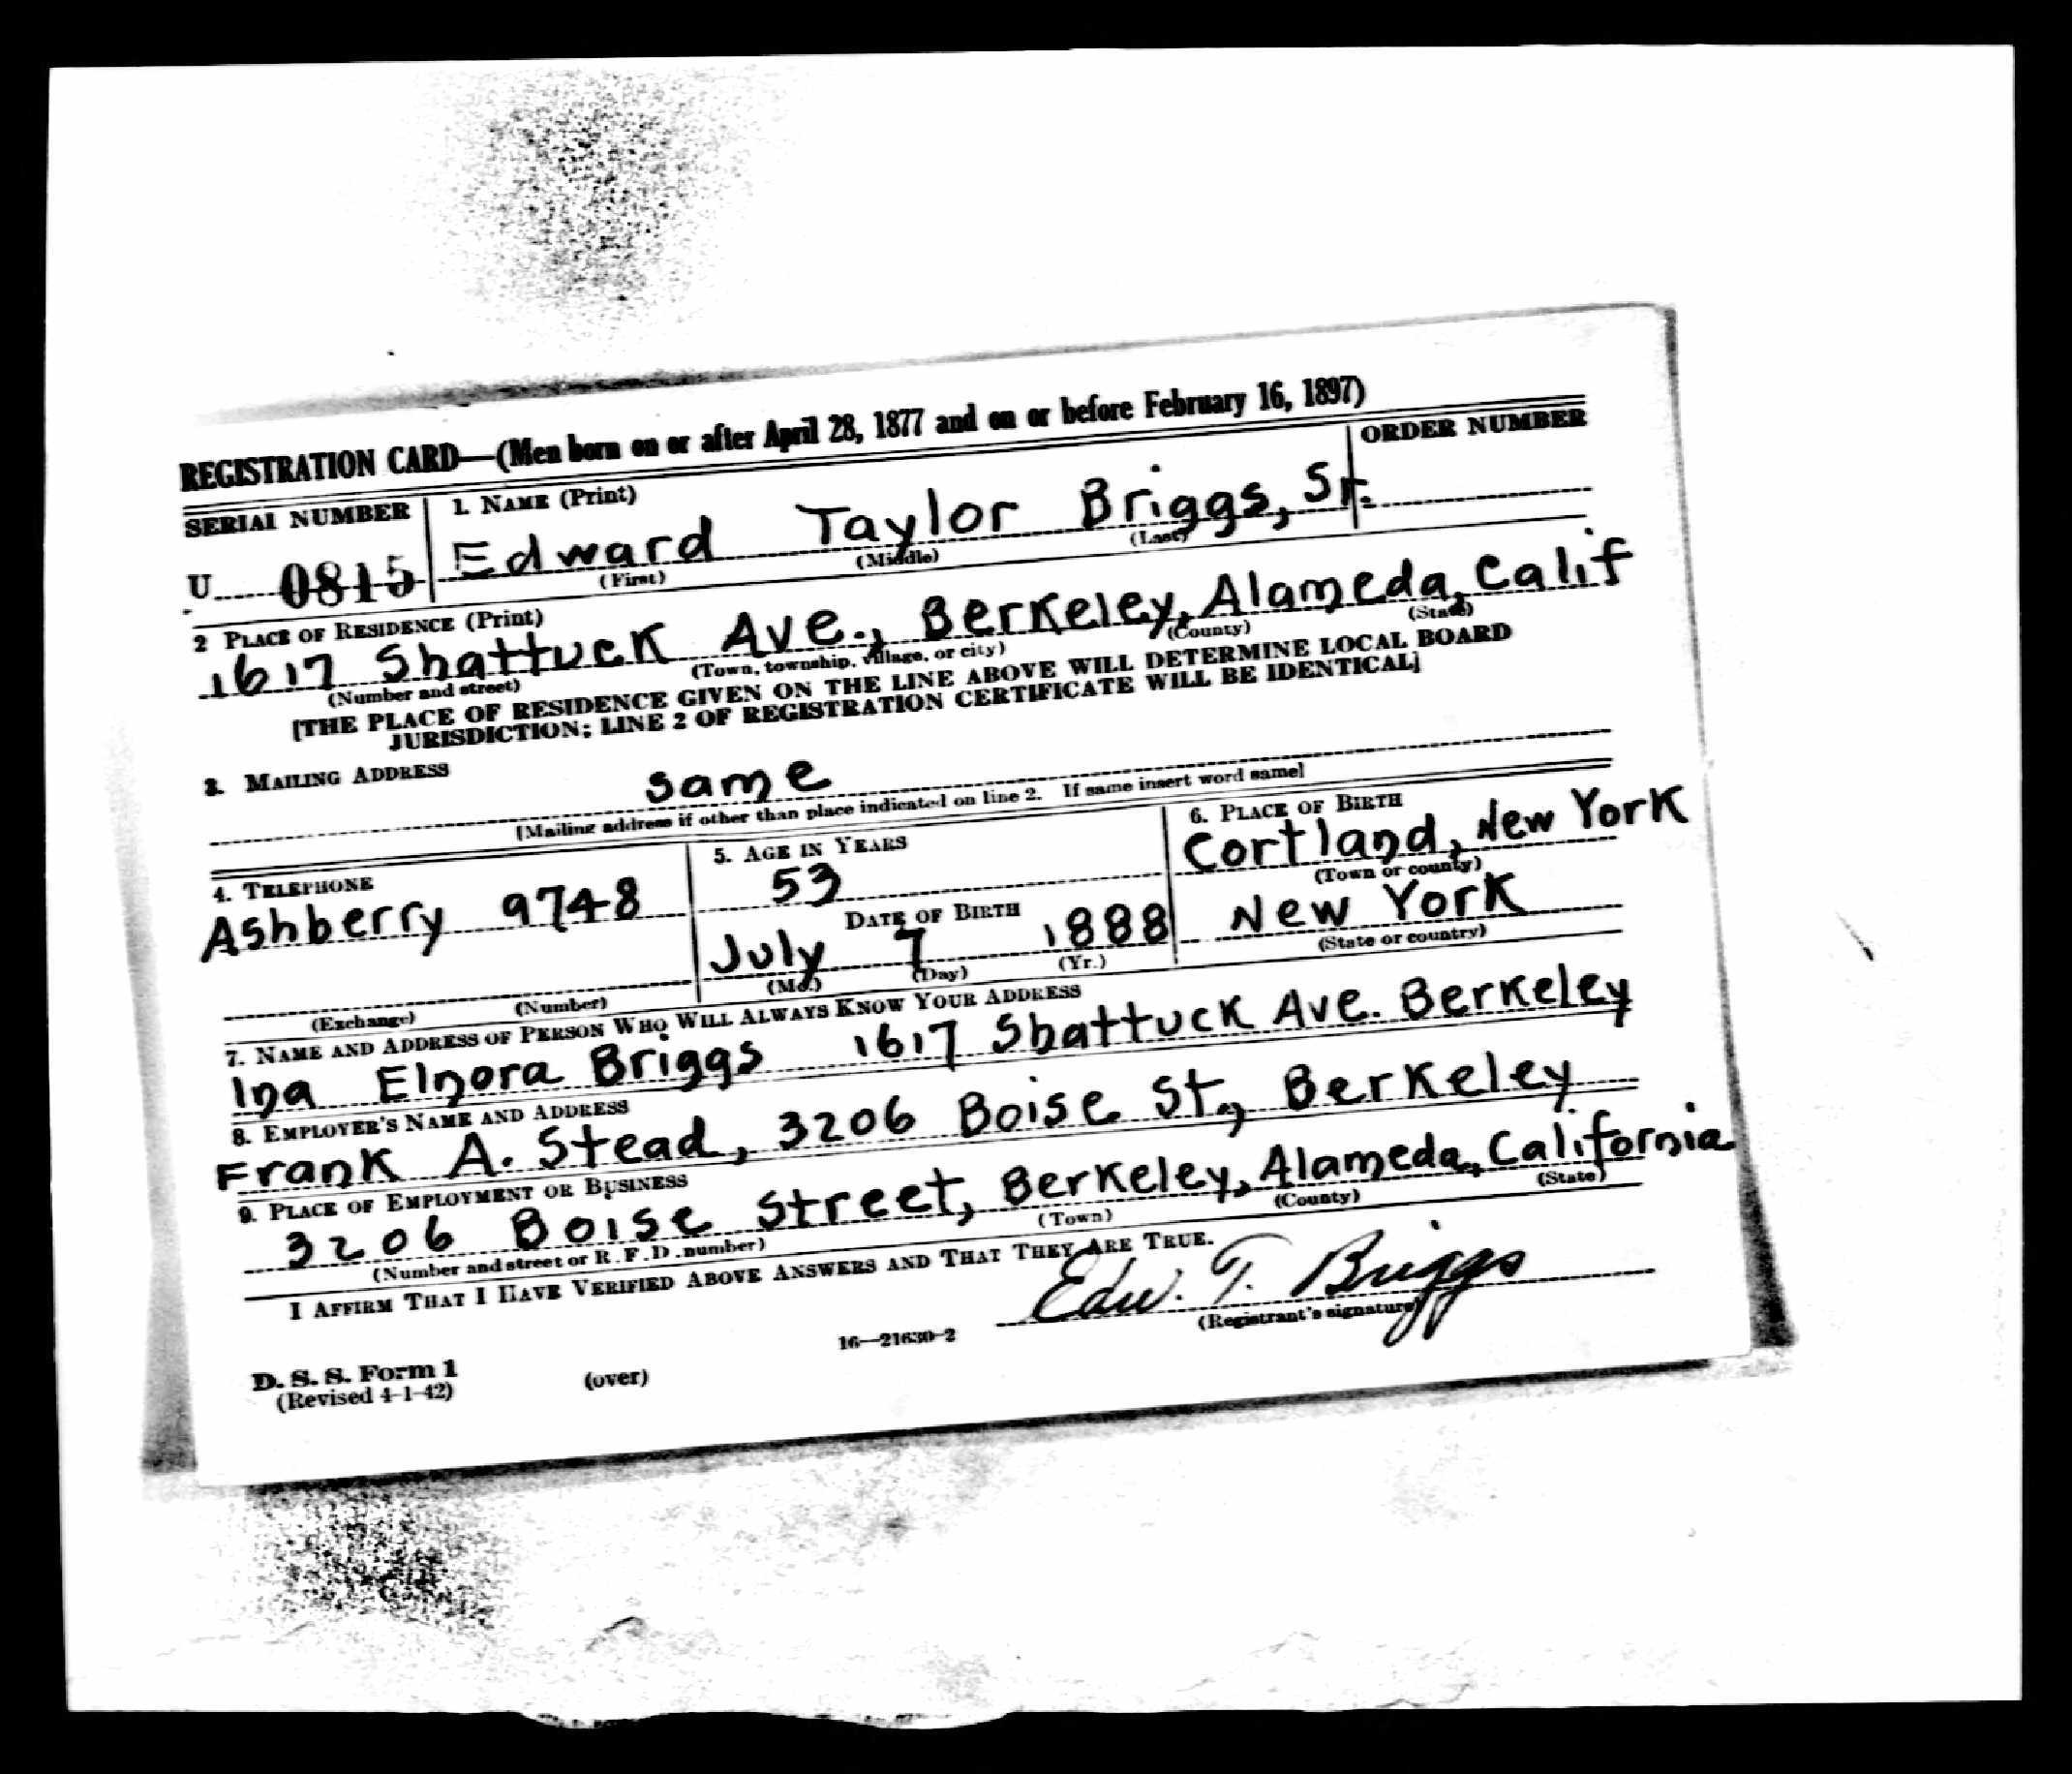 REGISTRATION CARD—(Men born on or after April 28, 1877 and on or before February 16, 1897)
SERIAL NUMBER 1. NAME (Print) ORDER NUMBER
U 0815 Edward Taylor Briggs, Sr.
(First) (Middle) (Last)
2 PLACE OF RESIDENCE (Print)
1617 Shattuck Ave., Berkeley, Alameda, Calif
(Number and street) (Town, township, village, or city) (County) (State)
[THE PLACE OF RESIDENCE GIVEN ON THE LINE ABOVE WILL DETERMINE LOCAL BOARD
JURISDICTION; LINE 2 OF REGISTRATION CERTIFICATE WILL BE IDENTICAL]
3. MAILING ADDRESS
same
[Mailing address if other than place indicated on line 2. If same insert word same]
4. TELEPHONE 5. AGE IN YEARS 6. PLACE OF BIRTH
Ashberry 9748 53 Cortland, New York
(Town or county)
DATE OF BIRTH
July 7 1888 New York
(Mo.) (Day) (Yr.) (State or country)
(Exchange) (Number)
7. NAME AND ADDRESS OF PERSON WHO WILL ALWAYS KNOW YOUR ADDRESS
Ina Elnora Briggs 1617 Shattuck Ave. Berkeley
8. EMPLOYER'S NAME AND ADDRESS
Frank A. Stead, 3206 Boise St., Berkeley
9. PLACE OF EMPLOYMENT OR BUSINESS
3206 Boise Street, Berkeley, Alameda, California
(Number and street or R. F. D. number) (Town) (County) (State)
I AFFIRM THAT I HAVE VERIFIED ABOVE ANSWERS AND THAT THEY ARE TRUE.
Edw. T. Briggs
(Registrant's signature)
D. S. S. Form 1 16—21630-2
(Revised 4-1-42) (over)